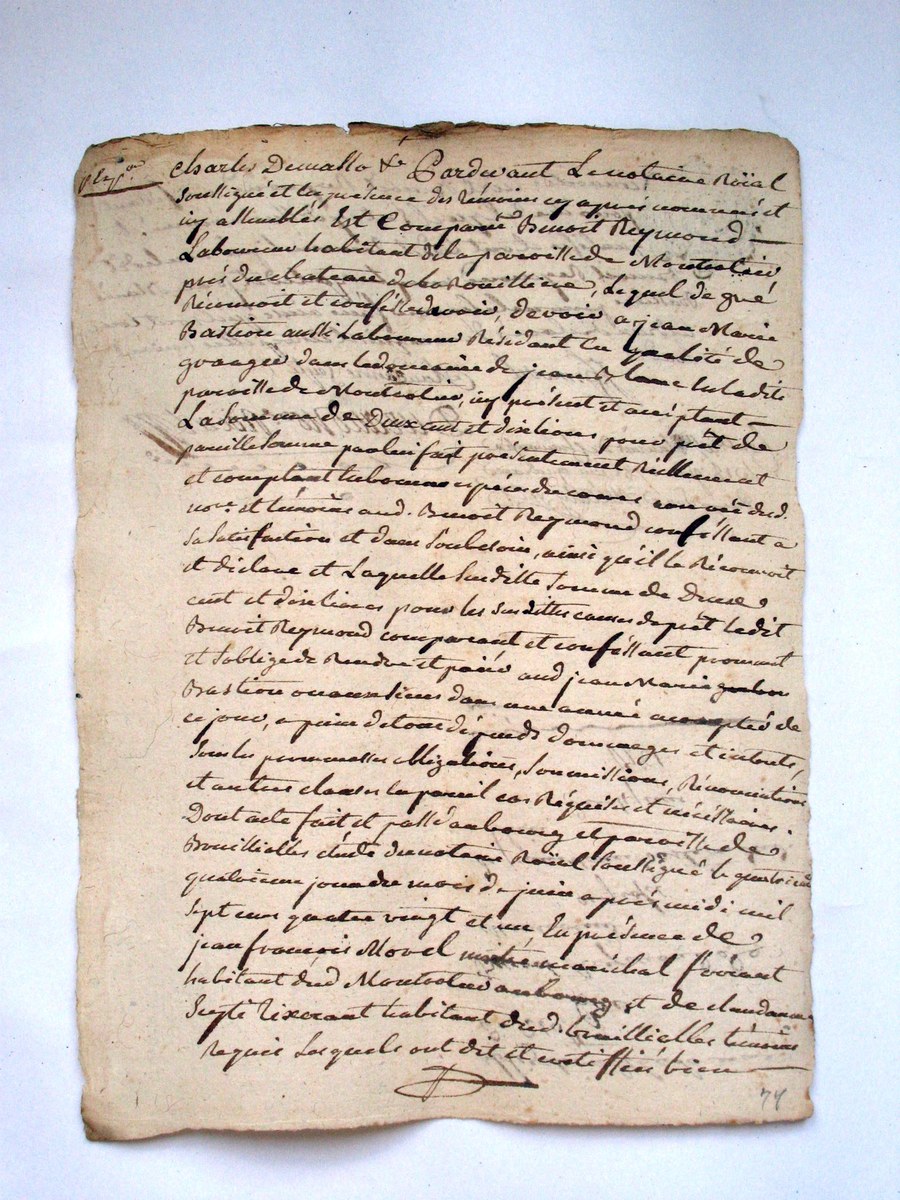 Charles Demasso &c Pardevant Le notaire Roïal
soussigné et en présence des témoins cy apres nommés et
icy assemblés Est Comparu Benoit Reymond
Laboureur habitant de la paroisse de
près du chateau de la Rouilliere, Lequel de gré
Reconnoit et confesse devoir a jean Marie
Bastion aussi Laboureur Résidant En qualité de
granger dans le domaine de jean en la dite
paroisse de icy présent et acceptant
La Somme de Deux cent et dix livres pour prêt de
pareille Somme par luy fait présentement Réellement
et comptant en bonnes espèces de cours du d.
nore et témoins aud. Benoit Reymond confessant a
sa Satisfaction et dans son besoin, ainsi qu'il le Reconnoit
et déclare et Laquelle Susditte Somme de Deux
cent et dix livres pour les Susdittes causes de prêt Ledit
Benoit Reymond comparant et confessant promet
et s'oblige de Rendre et paier aud jean Marie
Bastion ou aux siens dans une année a compter de
ce jour, a peine de tous dépends dommages et interets,
Sous les promesses obligations, Soumissions, Rénonciations
et autres clauses en pareil cas Réquises et nécéssaires.
Dont acte fait et passé au bourg et paroisse de
étude du notaire Roïal soussigné le
quatorzieme jour du mois de juin après midi mil
sept cens quatre vingt et un En présence de
jean françois Morel maître maréchal ferrant
habitant dud au bourg et de
habitant dud. témoins
Requis Lesquels ont dit et certiffié bien
74